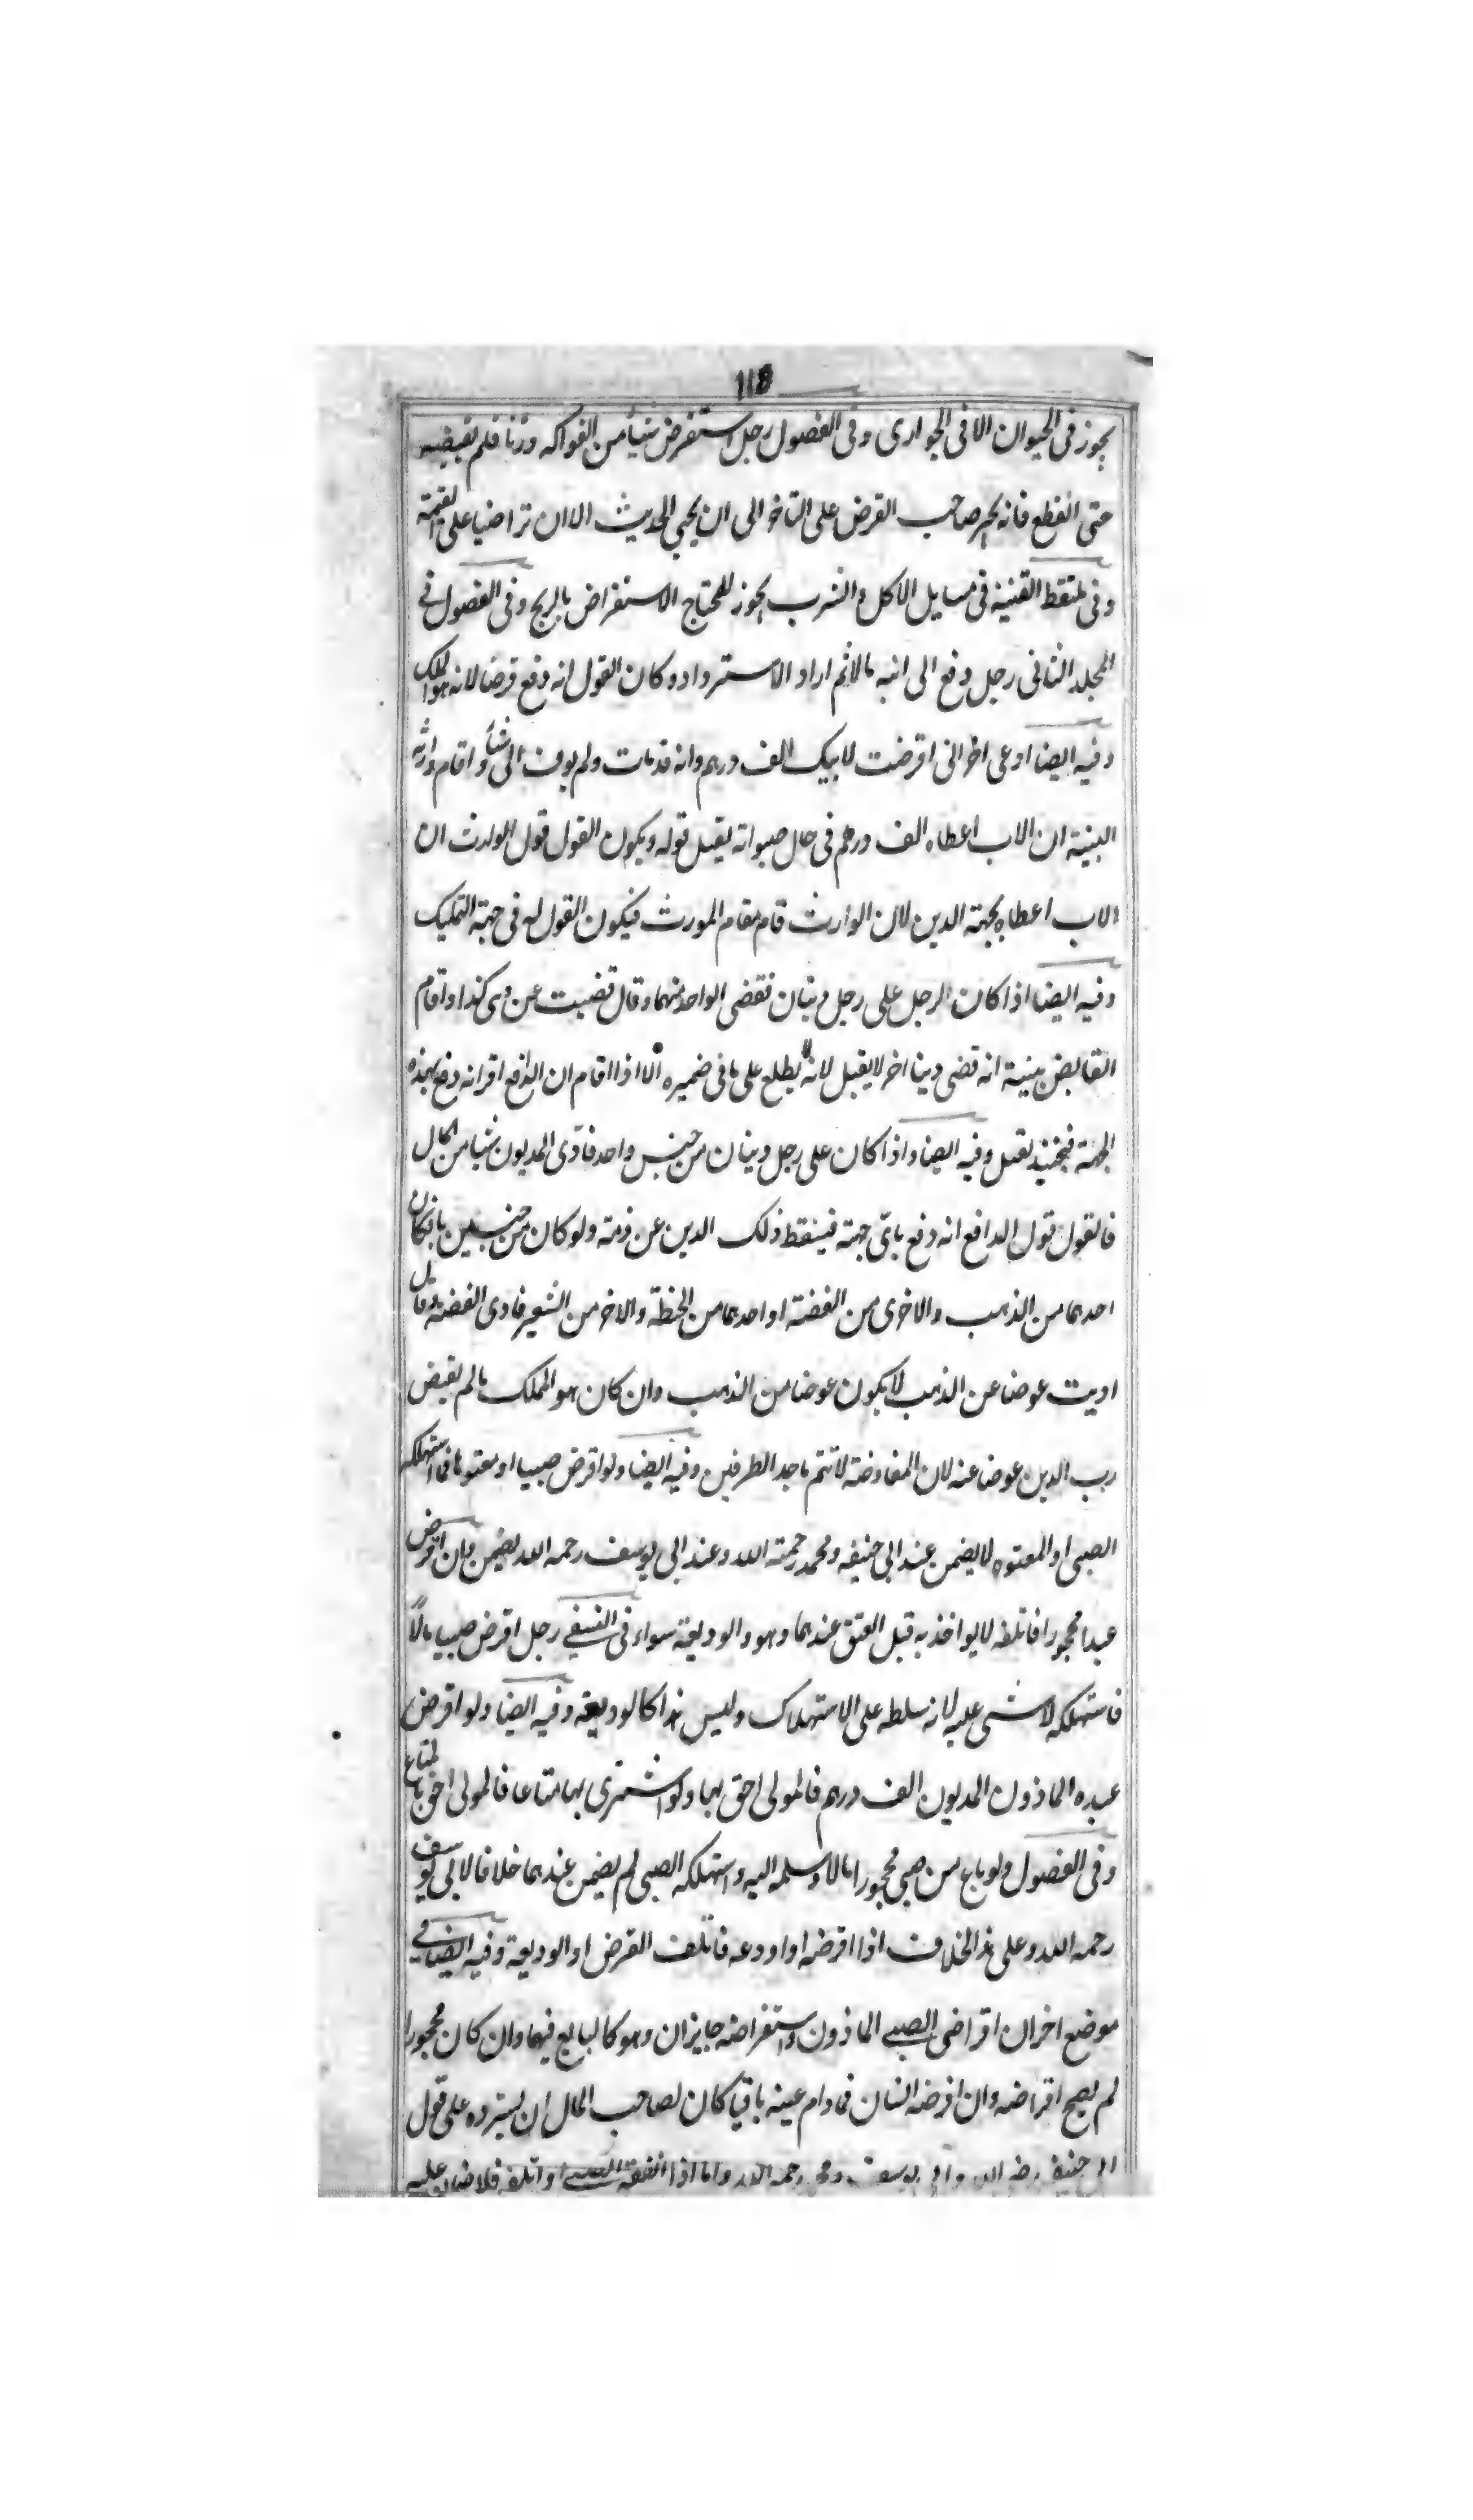 118
يجوز فى الحيوان الا فى الجوارى وفى الفصول رجل استقرض شيأ من الفواكه وزنا فلم يقبضه
حتى انقطع فانه يجبر صاحب القرض على التاخر الى ان يجى الحديث الا ان تراضيا على القيمة
وفى ملتقط القنية فى مسايل الاكل والشرب يجوز للمحتاج الاستقراض بالربح وفى الفصول فى
المجلد الثانى رجل دفع الى ابنه مالا ثم اراد الاسترداد وكان القول انه دفع قرضا لانه هو المملك
وفيه ايضا ادعى اخر انى اقرضت لابيك الف درهم وانه قد مات ولم يوف الى شيأ واقام وارثه
البينة ان الاب اعطاه الف درهم فى حال حيواته يقبل قوله ويكون القول قول الوارث ان
الاب اعطاه بجهة الدين لان الوارث قام مقام المورث فيكون القول له فى جهة التمليك
وفيه ايضا اذا كان لرجل على رجل دينان فقضى الواحد منهما وقال قضيت عن دى كذا واقام
القابض بينة انه قضى دينا اخر لا يقبل لانه لا يطلع على ما فى ضميره الا اذا اقام ان الدافع اقر انه دفع بهذه
الجهة فحينئذ يقبل وفيه ايضا واذا كان على رجل دينان من جنس واحد فادّى المديون شيا من المال
فالقول قول الدافع انه دفع باىّ جهة فيسقط ذلك الدين عن ذمته ولو كان من جنسين بان كان
احدهما من الذهب والاخرى من الفضة او احدهما من الحنطة والاخر من الشعير فادى الفضة وقال
اديت عوضا عن الذهب لا يكون عوضا من الذهب وان كان هو المملك ما لم يقبض
رب الدين عوضا عنه لان المعاوضة لا تتم باحد الطرفين وفيه ايضا ولو اقرض صبيا او معتوها فاستهلكه
الصبى او المعتوه لا يضمن عند ابى حنيفه ومحمد رحمة الله وعند ابى يوسف رحمه الله يضمن وان اقرض
عبدا محجورا فاتلفه لا يواخذ به قبل العتق عندهما وهو والوديعة سواء فى النسفى رجل اقرض صبيا مالاً
فاستهلكه لا شىء عليه لانه سلطه على الاستهلاك وليس هذا كالوديعة وفيه ايضا ولو اقرض
عبده الماذون المديون الف درهم فالمولى احق بها ولو اشترى بها متاعا فالمولى احق بالمتاع
وفى الفصول ولو باع من صبى محجورا مالا وسلمه اليه واستهلكه الصبى لم يضمن عندهما خلافا لابى يوسف
رحمه الله وعلى هذا الخلاف اذا اقرضه او اودعه فاتلف القرض او الوديعة وفيه ايضا فى
موضع اخر ان اقراض الصبى الماذون واستقراضه جايزان وهو كالبايع فيهما وان كان محجورا
لم يصح اقراضه وان اقرضه انسان فمادام عينه باقيا كان لصاحب المال ان يسترده على قول
ابى حنيفه رضى الله وابى يوسف ومحمد رحمه الله واما اذا انفقه الصبى او اتلفه فلا ضمان عليه